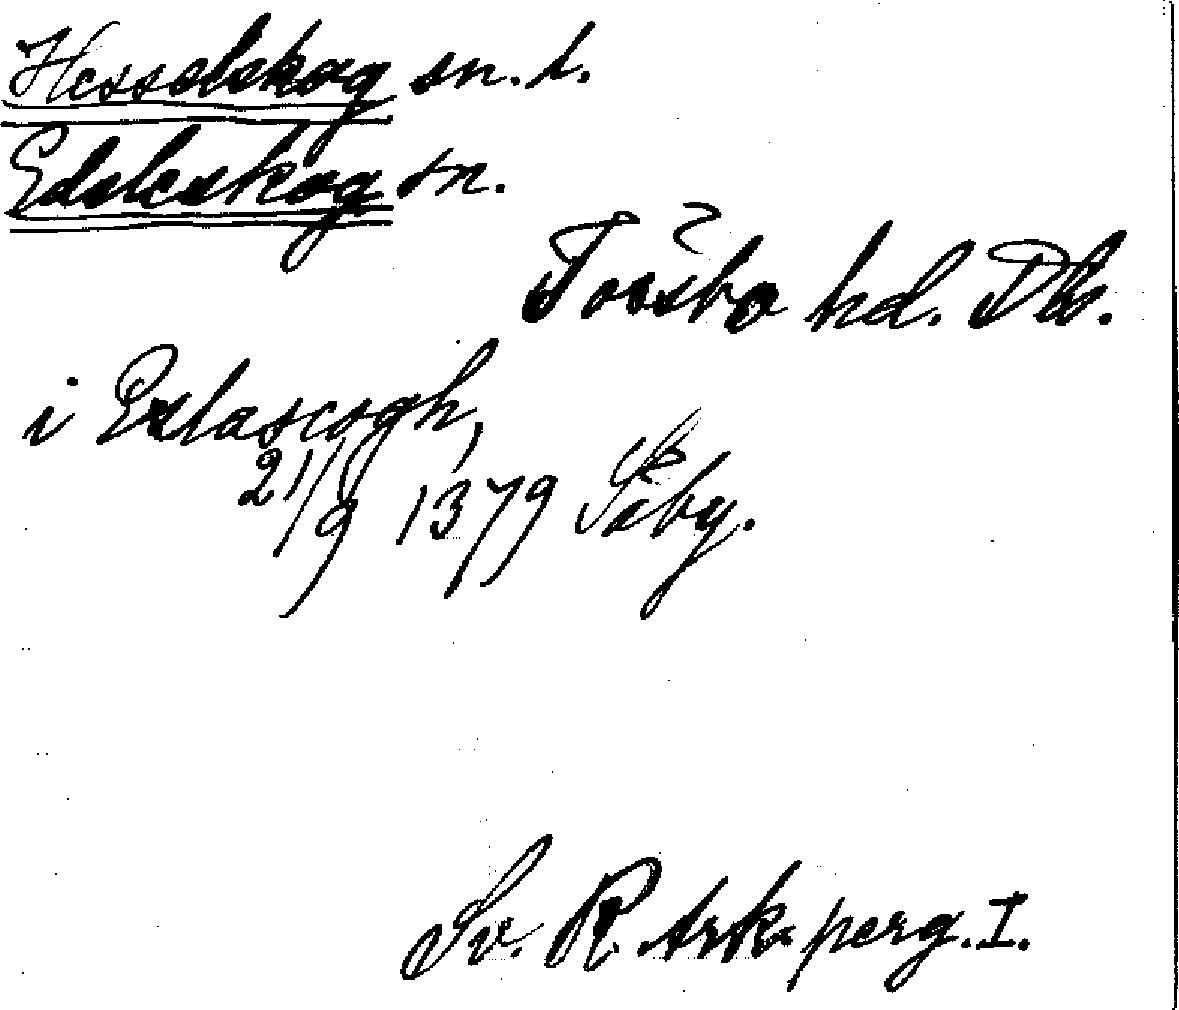 Hesselskog sn. t.
Edsleskog sn.
Tössbo hd. Dls.
i Eslascogh,
21/9 1379 Säby.
Sv. R. Ark. perg. I.